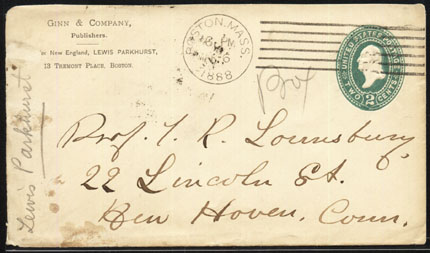 GINN & COMPANY,
Publishers.
or New England, LEWIS PARKHURST,
13 TREMONT PLACE, BOSTON.
BOSTON, MASS.
1888
UNITED STATES POSTAGE
TWO 2 CENTS
Prof. T. R. Lounsbury,
22 Lincoln St.
New Haven, Conn.
Lewis Parkhurst